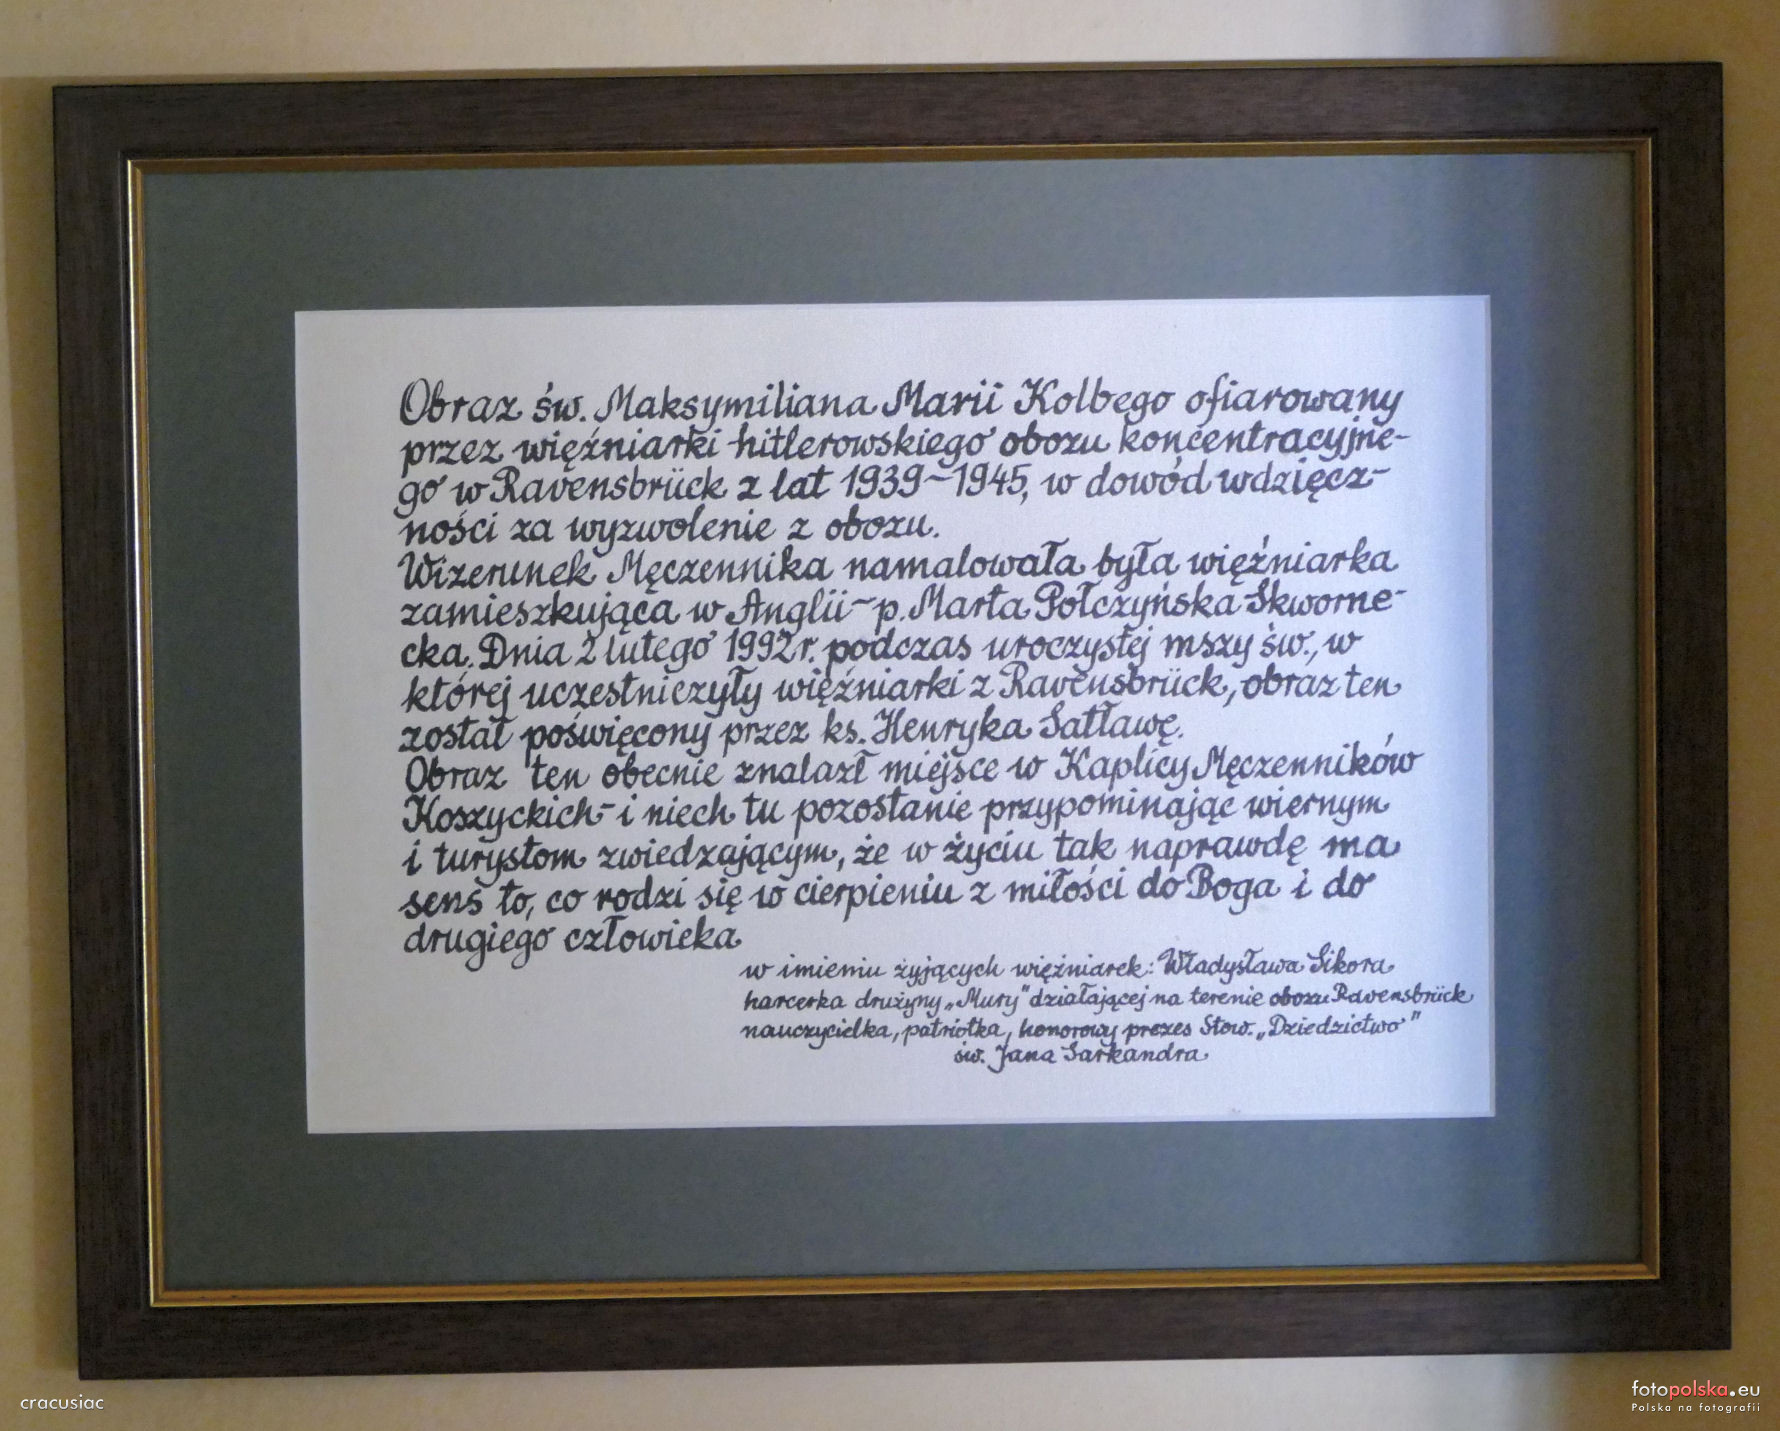 Obraz św. Maksymiliana Marii Kolbego ofiarowany
przez więźniarki hitlerowskiego obozu koncentracyjne-
go w Ravensbrück z lat 1939-1945, w dowód wdzięcz-
ności za wyzwolenie z obozu.
Wizerunek Męczennika namalowała była więźniarka
zamieszkująca w Anglii - p. Marta Połczyńska-Skworne-
cka. Dnia 2 lutego 1992 r. podczas uroczystej mszy św., w
której uczestniczyły więźniarki z Ravensbrück, obraz ten
został poświęcony przez ks. Henryka Satławę.
Obraz ten obecnie znalazł miejsce w Kaplicy Męczenników
Koszyckich - i niech tu pozostanie przypominając wiernym
i turystom zwiedzającym, że w życiu tak naprawdę ma
sens to, co rodzi się w cierpieniu z miłości do Boga i do
drugiego człowieka
w imieniu żyjących więźniarek: Władysława Sikora
harcerka drużyny „Mury" działającej na terenie obozu Ravensbrück
nauczycielka, patriotka, honorowy prezes Stow. „Dziedzictwo"
św. Jana Sarkandra
cracusiac
fotopolska.eu
Polska na fotografii